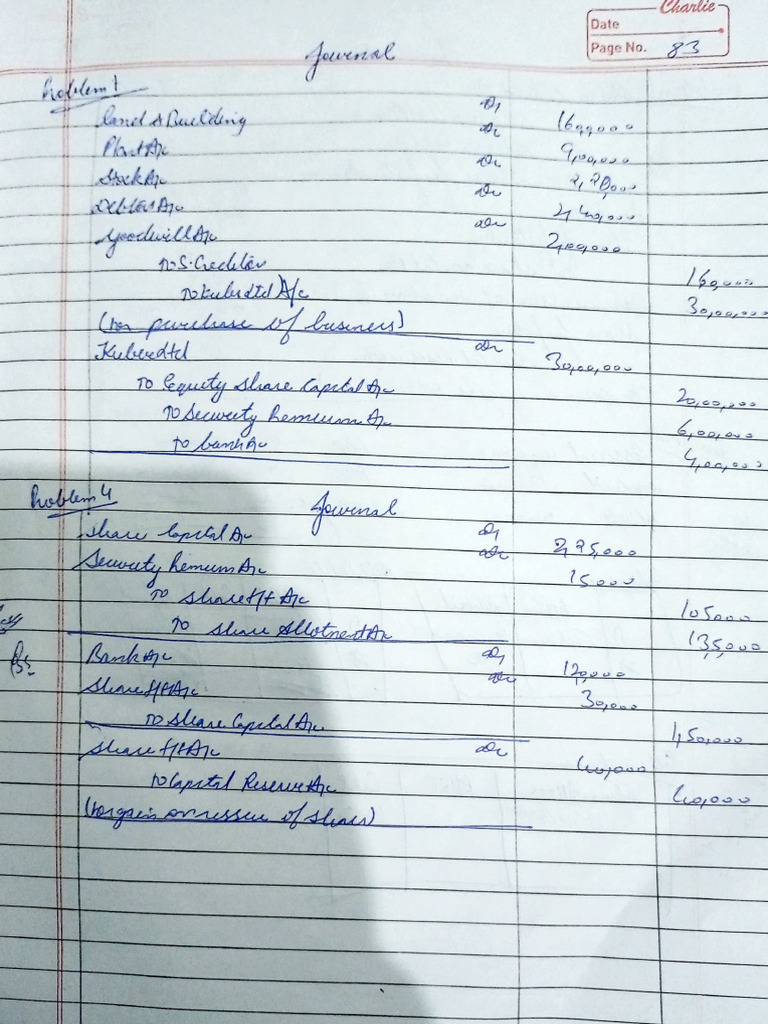 Charlie
Date
Page No. 83
Journal
Problem 1
Land & Building Dr 16,00,000
Plant A/c Dr 9,00,000
Stock A/c Dr 2,20,000
Debtors A/c Dr 2,40,000
Goodwill A/c Dr 2,00,000
To S. Creditor 160,000
To Kuber Ltd A/c 30,00,000
(For purchase of business)
Kuber Ltd Dr 30,00,000
To Equity Share Capital A/c 20,00,000
To Security Premium A/c 6,00,000
To bank A/c 4,00,000
Problem 4 Journal
Share Capital A/c Dr 2,25,000
Security Premium A/c Dr 15000
To Share F/H A/c 105000
To Share Allotment A/c 135,000
Bank A/c Dr 120,000
Share F/H A/c Dr 30,000
To Share Capital A/c 1,50,000
Share F/H A/c Dr 40,000
To Capital Reserve A/c 40,000
(For gain on of Shares)